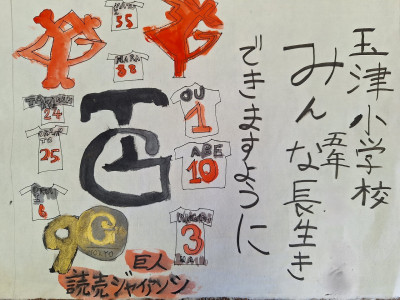 玉津小学校
五年
みんな長生き
できますように
55
88
24
25
6
OU
1
ABE
10
3
90
G
巨人
読売ジャイアンツ